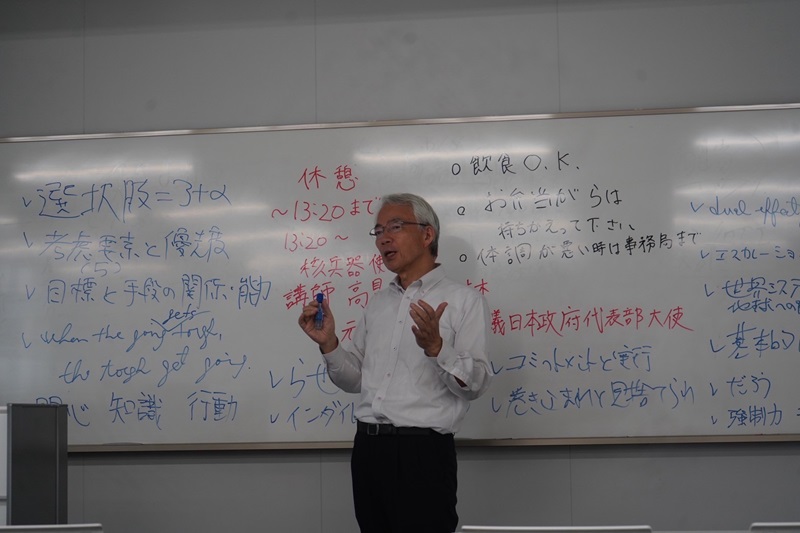 ✓選択肢=3+α
✓考慮要素と優先
(5)
✓目標と手段の関係・能力
✓when the going gets tough,
the tough get going.
関心 知識 行動
休憩
～13:20まで
13:20～
核兵器
講師 高見
元
義日本政府代表部大使
✓らせ
✓インダイレ
o 飲食O.K.
o お弁当がらは
持ちかえって下さい
o 体調が悪い時は事務局まで
✓コミットメントと実行
✓巻き込まれと見捨てられ
✓dual effe
✓エスカレーショ
✓世界システ
地球への
✓基本的
✓だろう
✓強制力